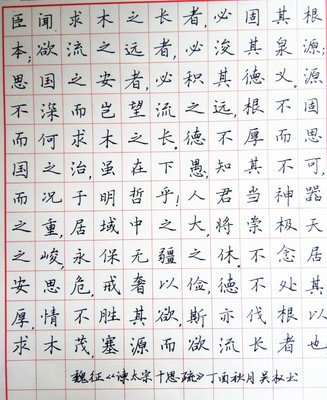 臣闻求木之长者,必固其根
本;欲流之远者,必浚其泉源,
思国之安者,必积其德义。源
不深而岂望流之远,根不固
而何求木之长。德不厚而思
国之治,虽在下愚,知其不可,
而况于明哲乎!人君当神器
之重,居域中之大,将崇极天
之峻,永保无疆之休。不念居
安思危,戒奢以俭,德不处其
厚,情不胜其欲,斯亦伐根以
求木茂,塞源而欲流长者也
魏征《谏太宗十思疏》丁酉秋月吴权书